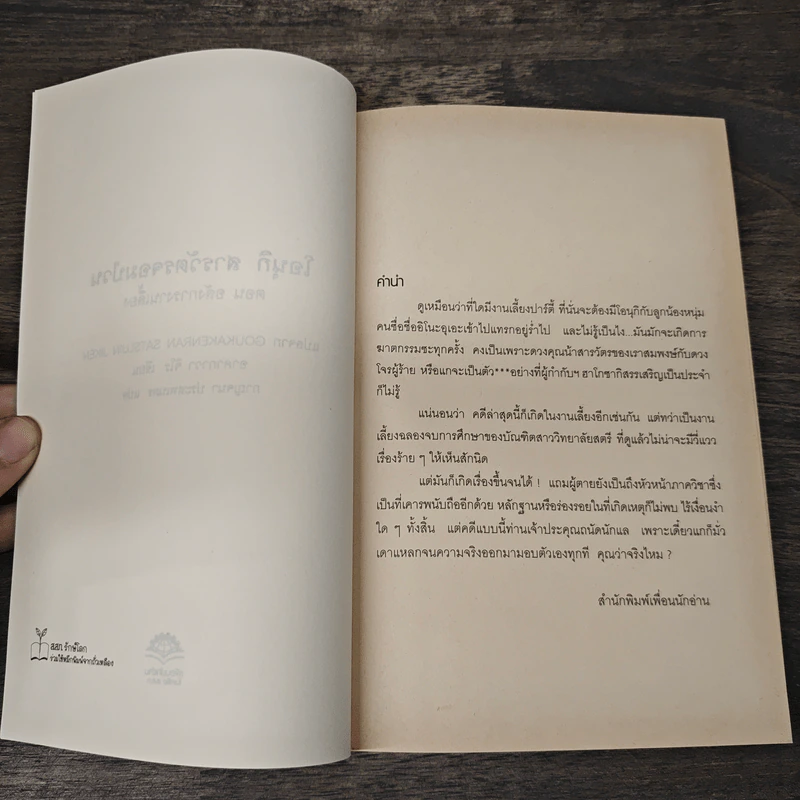 สสท. รักษ์โลก
ร่วมใช้หมึกพิมพ์จากถั่วเหลือง
คำนำ
ดูเหมือนว่าที่ใดมีงานเลี้ยงปาร์ตี้ ที่นั่นจะต้องมีโอนุกิกับลูกน้องหนุ่ม
คนซื่อชื่ออิโนะอุเอะเข้าไปแทรกอยู่ร่ำไป และไม่รู้เป็นไง...มันมักจะเกิดการ
ฆาตกรรมซะทุกครั้ง คงเป็นเพราะดวงคุณน้าสารวัตรของเราสมพงษ์กับดวง
โจรผู้ร้าย หรือแกจะเป็นตัว***อย่างที่ผู้กำกับฯ ฮาโกซากิสรรเสริญเป็นประจำ
ก็ไม่รู้
แน่นอนว่า คดีล่าสุดนี้ก็เกิดในงานเลี้ยงอีกเช่นกัน แต่ทว่าเป็นงาน
เลี้ยงฉลองจบการศึกษาของบัณฑิตสาววิทยาลัยสตรี ที่ดูแล้วไม่น่าจะมีวี่แวว
เรื่องร้าย ๆ ให้เห็นสักนิด
แต่มันก็เกิดเรื่องขึ้นจนได้ ! แถมผู้ตายยังเป็นถึงหัวหน้าภาควิชาซึ่ง
เป็นที่เคารพนับถืออีกด้วย หลักฐานหรือร่องรอยในที่เกิดเหตุก็ไม่พบ ไร้เงื่อนงำ
ใด ๆ ทั้งสิ้น แต่คดีแบบนี้ท่านเจ้าประคุณถนัดนักแล เพราะเดี๋ยวแกก็มั่ว
เดาแหลกจนความจริงออกมามอบตัวเองทุกที คุณว่าจริงไหม ?
สำนักพิมพ์เพื่อนนักอ่าน